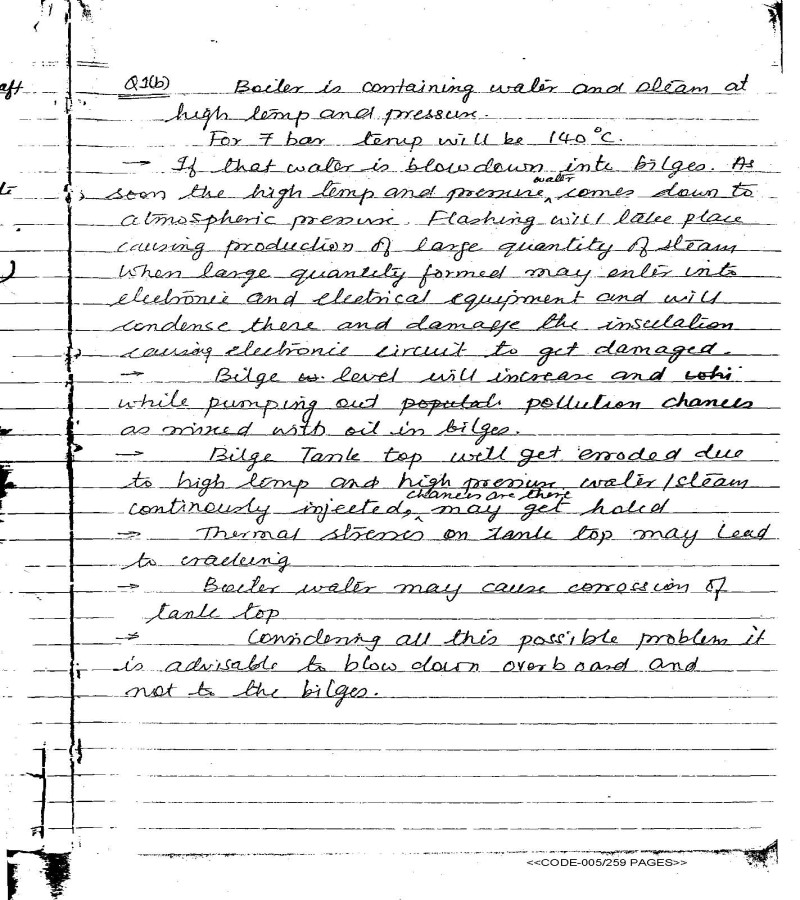 aft
Q1(b) Boiler is containing water and steam at
high temp and pressure.
For 7 bar temp will be 140°C.
→ If that water is blowdown into bilges. As
soon the high temp and pressure water comes down to
atmospheric pressure. Flashing will take place
causing production of large quantity of steam
When large quantity formed may enter into
electronic and electrical equipment and will
condense there and damage the insulation
causing electronic circuit to get damaged.
→ Bilge w. level will increase and whi
while pumping out populat. pollution chances
as mixed with oil in bilges.
→ Bilge Tank top will get erroded due
to high temp and high pressure water/steam
continously injected, chances are there may get holed
→ Thermal stresses on Tank top may Lead
to cracking
→ Boiler water may cause corrossion of
tank top
→ Considering all this possible problem it
is advisable to blow down overboard and
not to the bilges.
<<CODE-005/259 PAGES>>